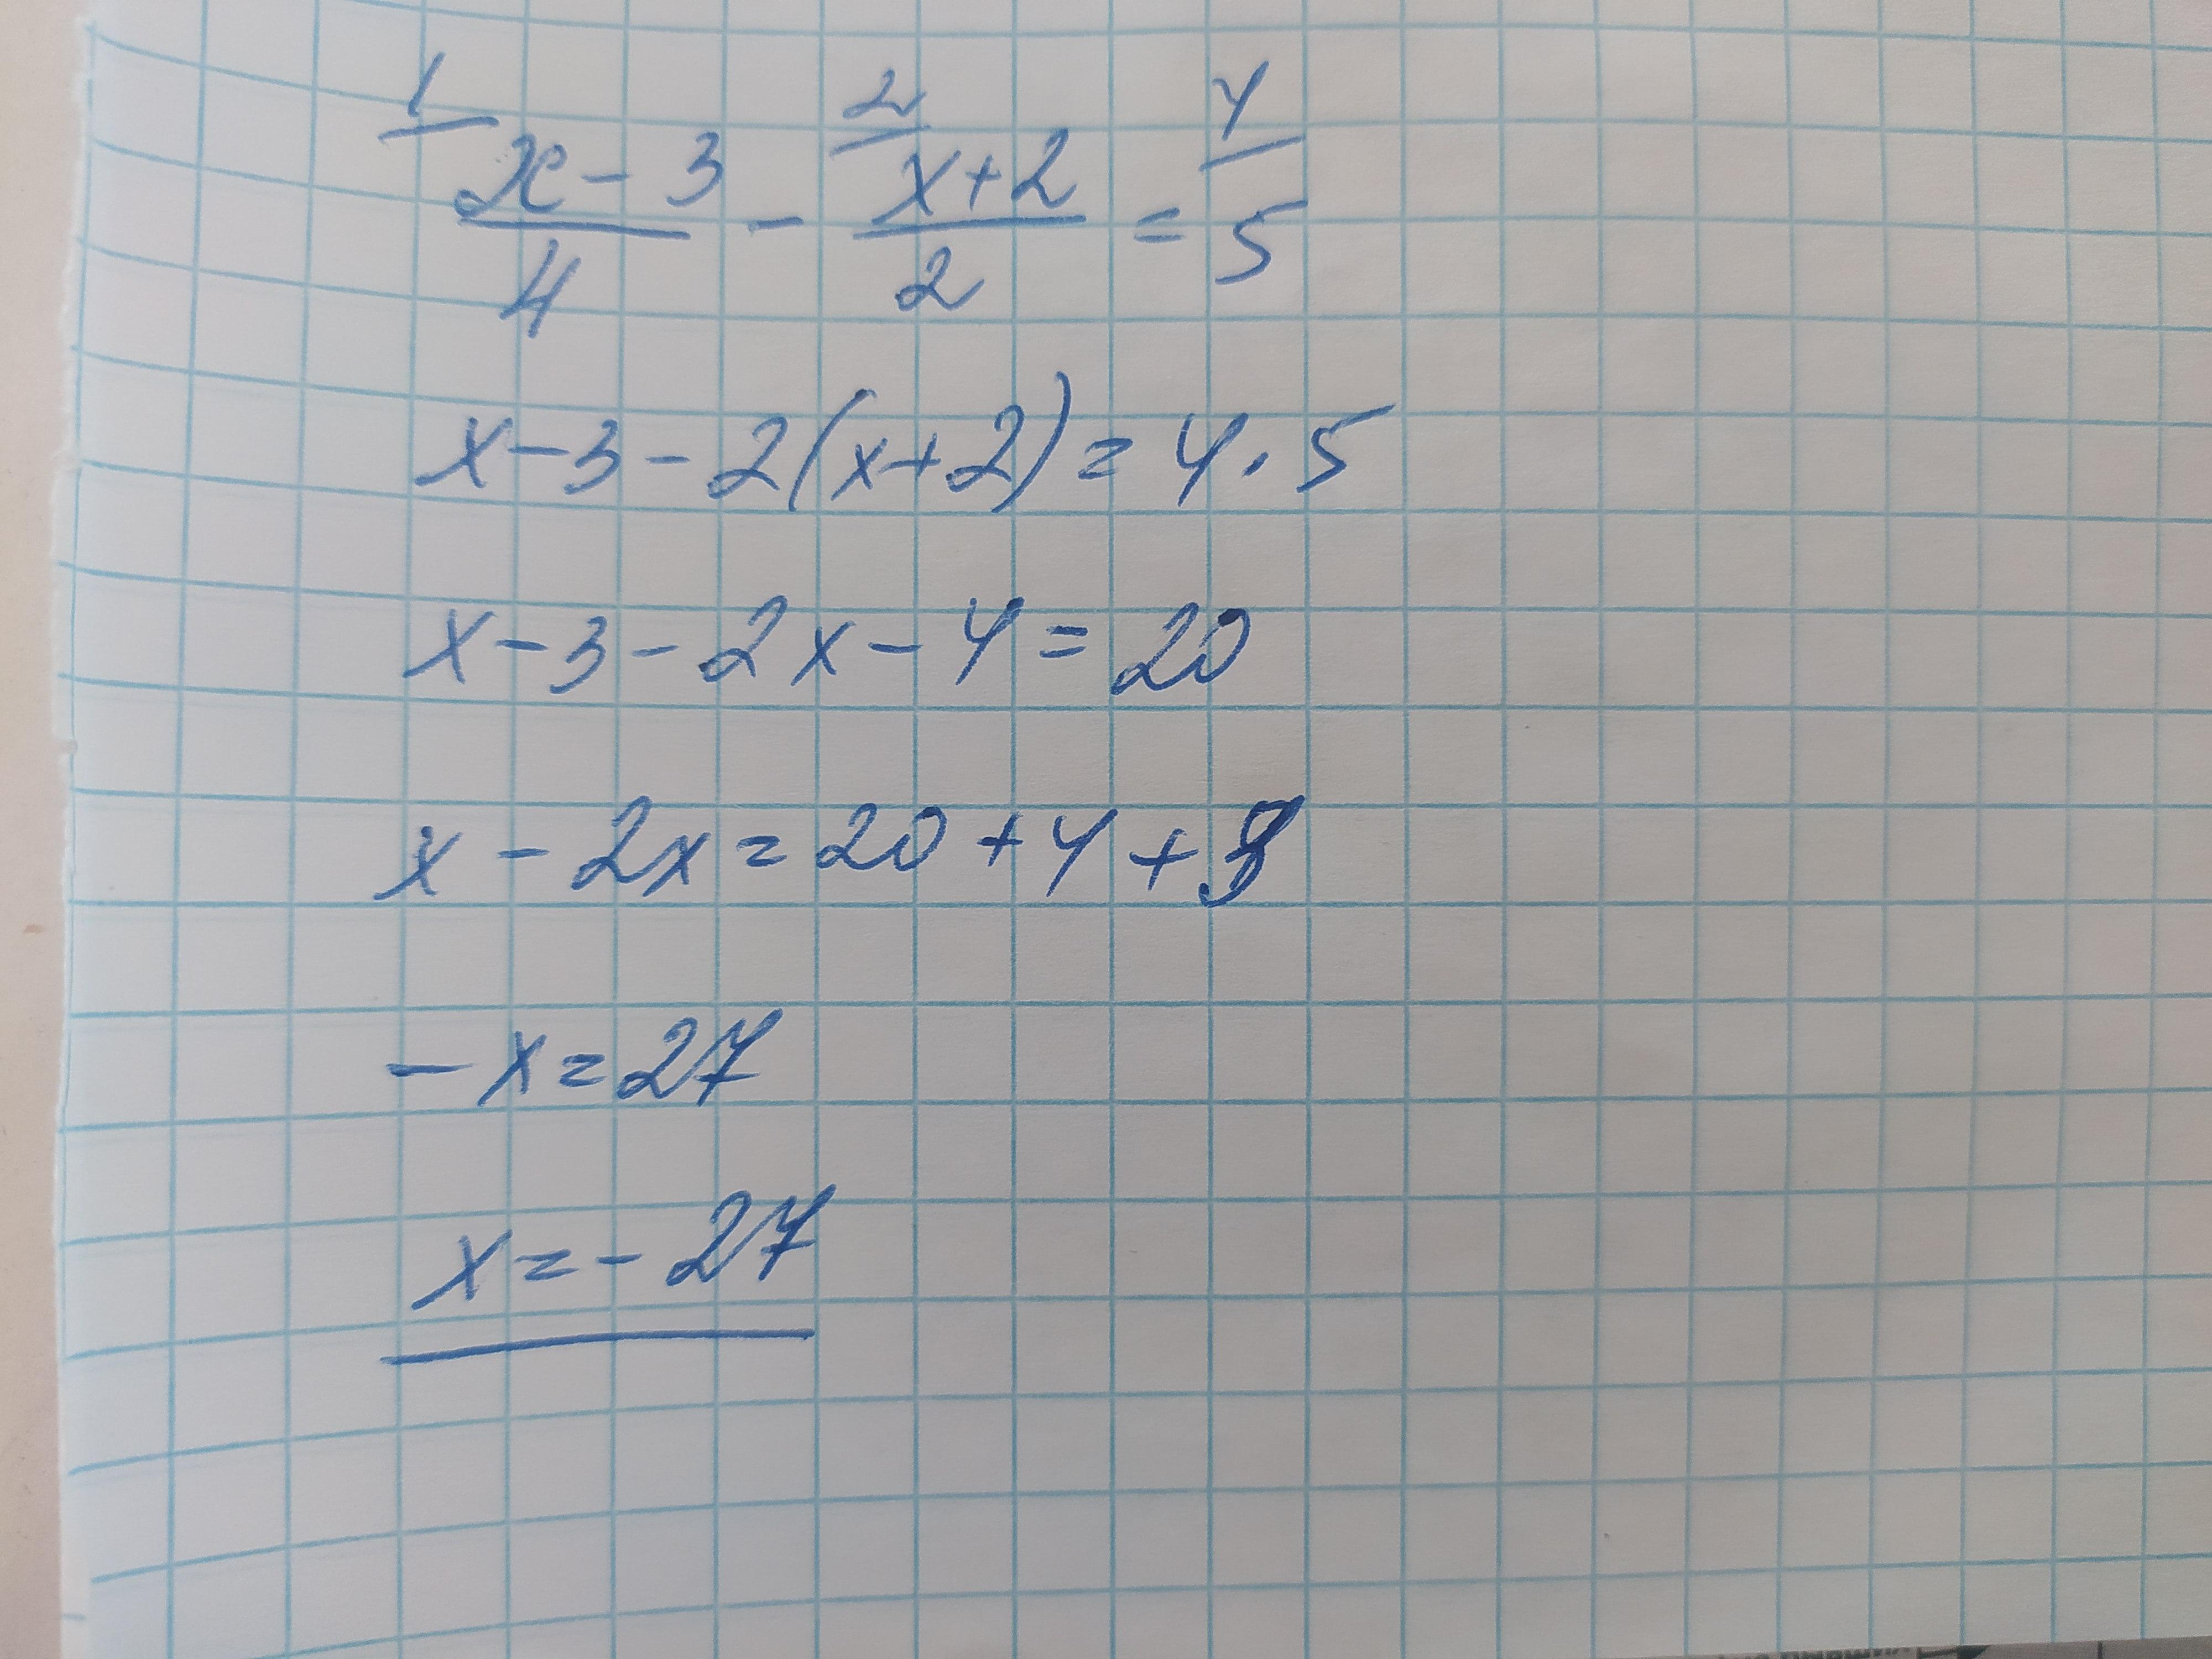 1 2 4
x - 3 / 4 - x + 2 / 2 = 5
x - 3 - 2(x + 2) = 4 · 5
x - 3 - 2x - 4 = 20
x - 2x = 20 + 4 + 3
- x = 27
x = - 27